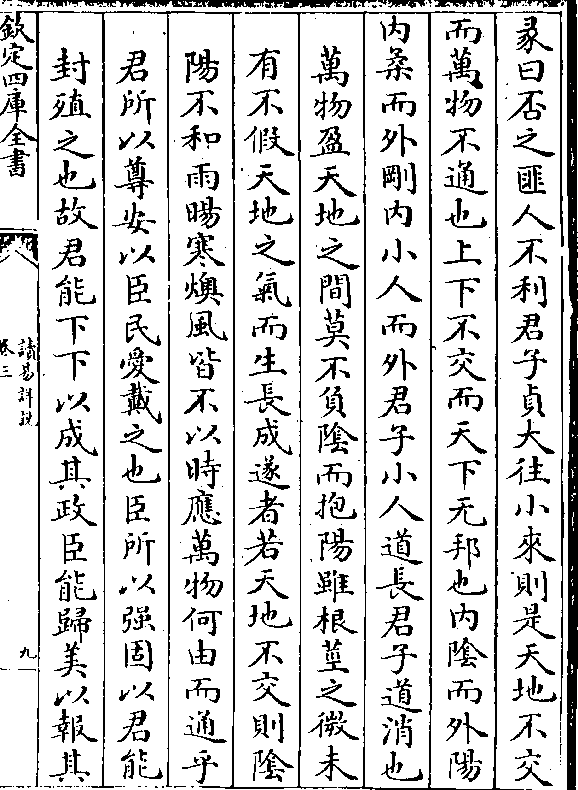 彖曰否之匪人不利君子貞大往小來則是天地不交
而萬物不通也上下不交而天下无邦也内陰而外陽
内柔而外剛内小人而外君子小人道長君子道消也
萬物盈天地之間莫不負陰而抱陽雖根荄之微未
有不假天地之氣而生長成遂者若天地不交則陰
陽不和雨暘寒燠風皆不以時應萬物何由而通乎
君所以尊安以臣民愛戴之也臣所以强固以君能
封殖之也故君能下下以成其政臣能歸美以報其
欽定四庫全書
讀易詳説
卷三
九